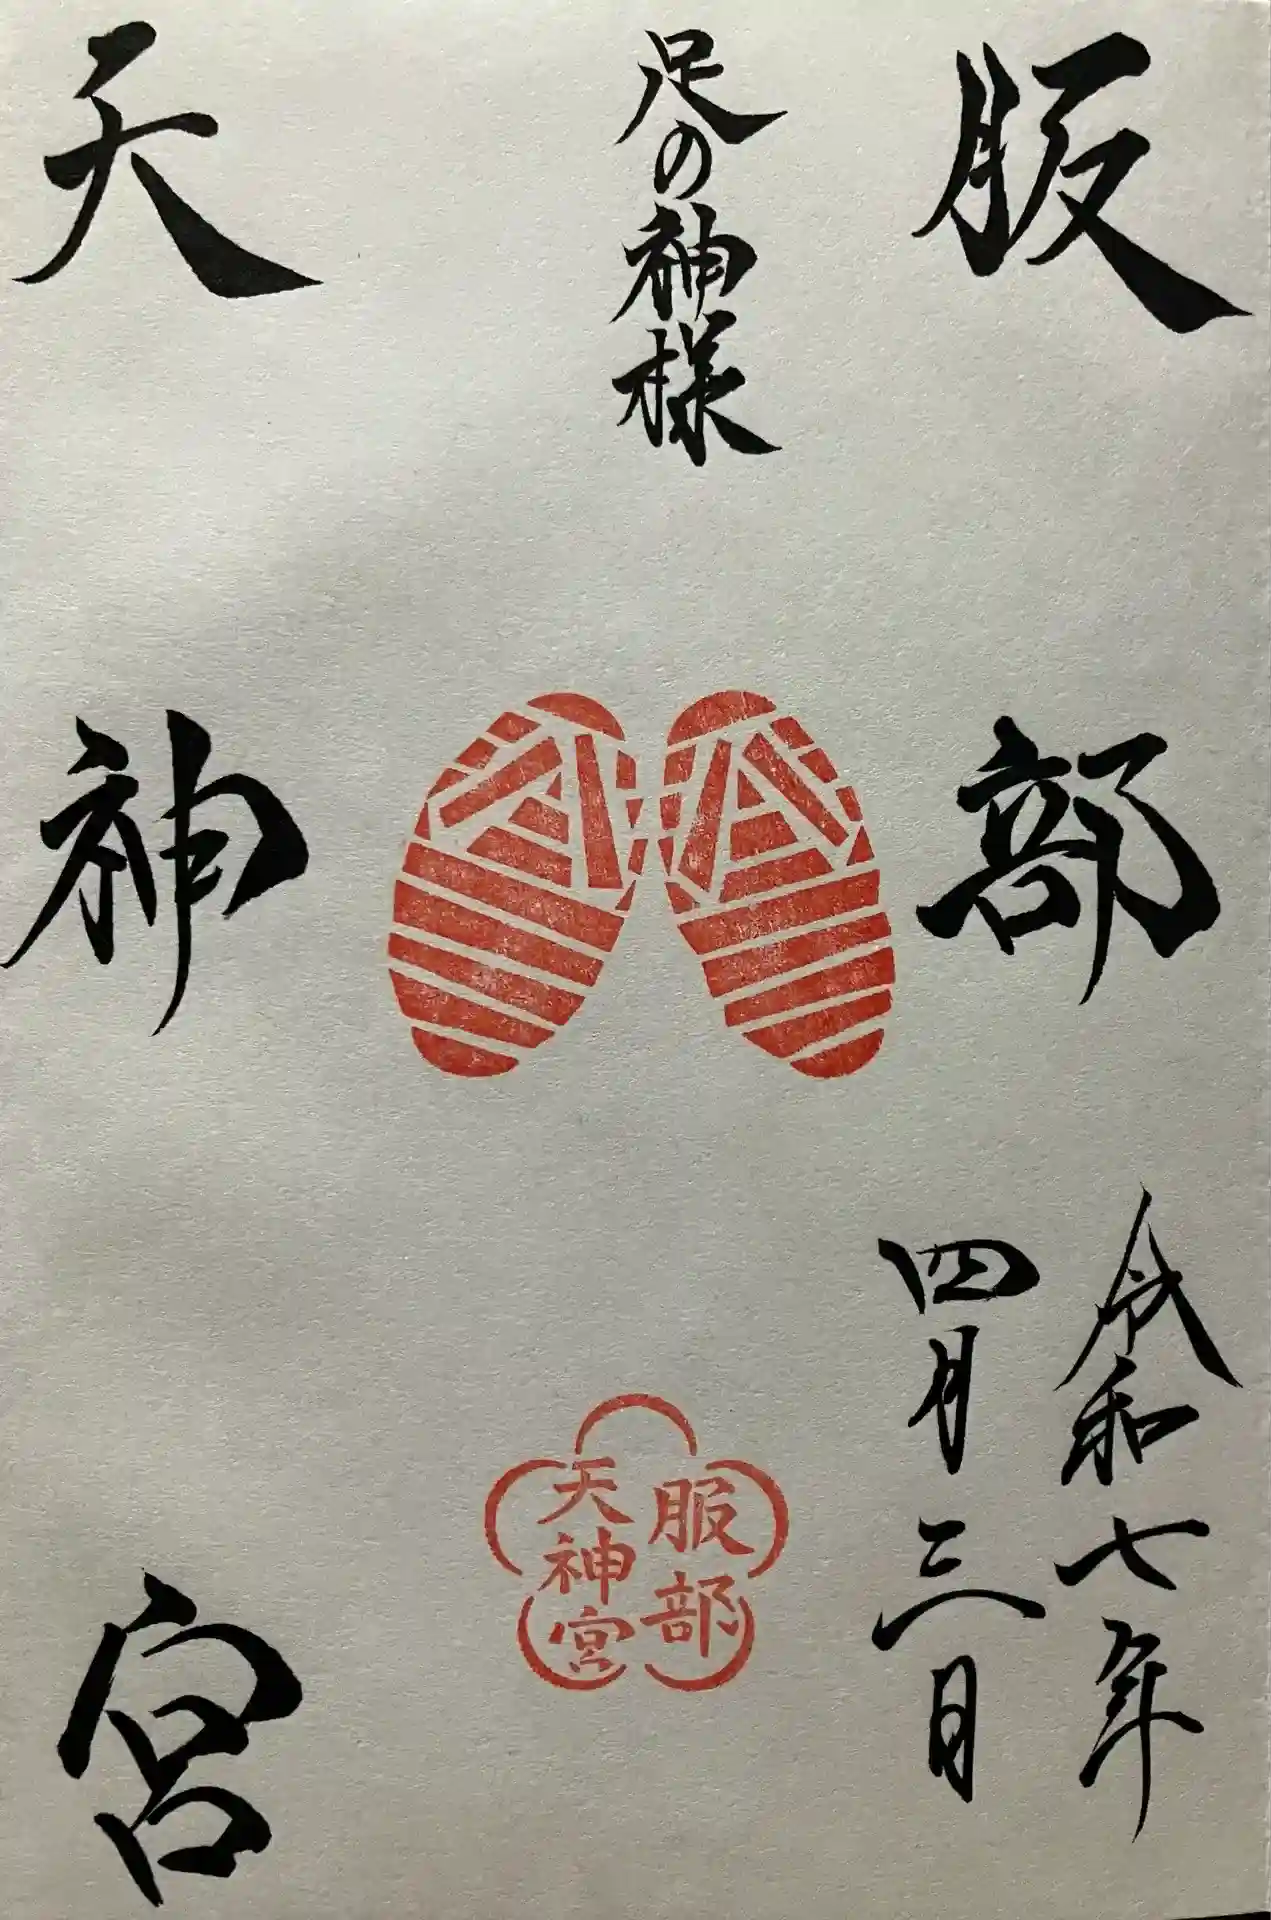 服部
令和七年
四月三日
足の神様
服部
天神宮
天神宮